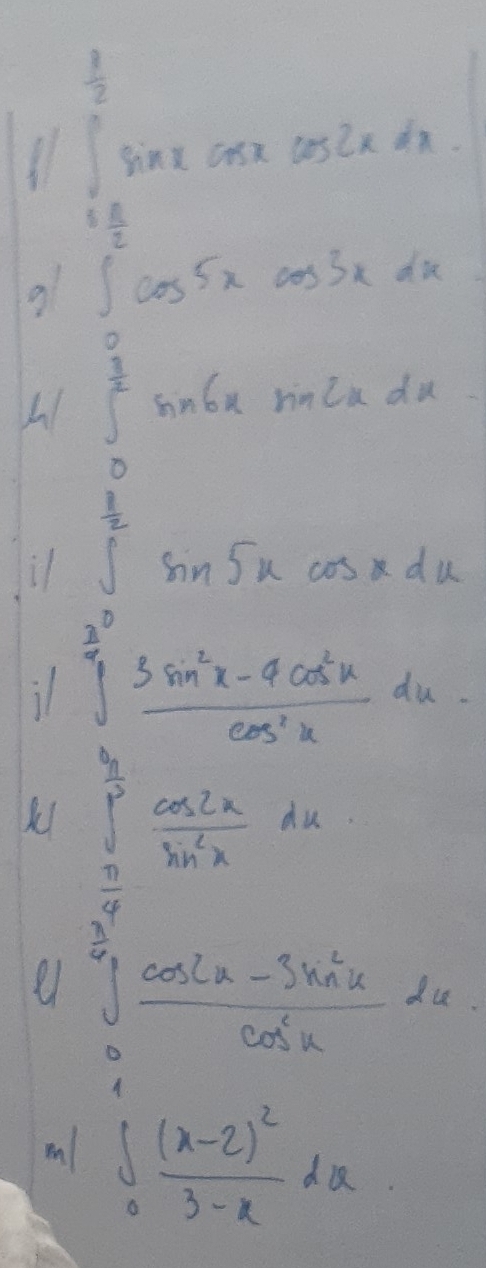 f/ ∫_0^{π/2} sinx cosx cos2x dx.
g/ ∫_0^{π/2} cos5x cos3x dx.
h/ ∫_0^{π/2} sin6x sin2x dx.
i/ ∫_0^{π/2} sin5x cosx dx
j/ ∫_0^{π/4} (3sin²x - 4cos²x)/(cos²x) dx.
k/ ∫_{π/4}^{π/3} (cos2x)/(sin²x) dx.
l/ ∫_0^{π/4} (cos2x - 3sin²x)/(cos²x) dx.
m/ ∫_0^1 (x-2)²/(3-x) dx.